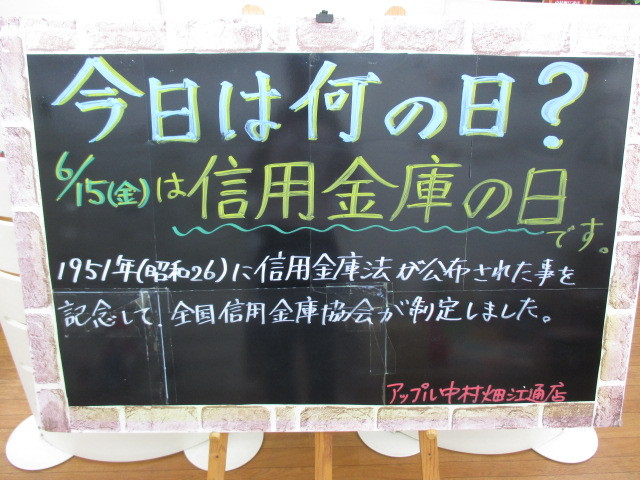 今日は何の日?
6/15(金)は信用金庫の日です。
1951年(昭和26)に信用金庫法が公布された事を
記念して、全国信用金庫協会が制定しました。
アップル中村畑江通店